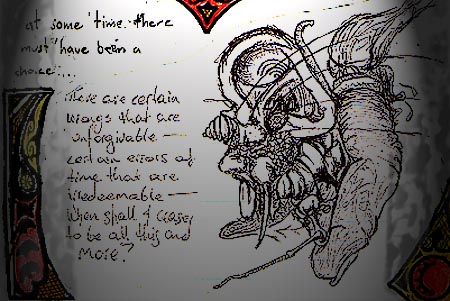 at some time there
must have been a
choice....
There are certain
wrongs that are
unforgivable —
certain errors of
time that are
irredeemable —
When shall I cease
to be all this and
more?